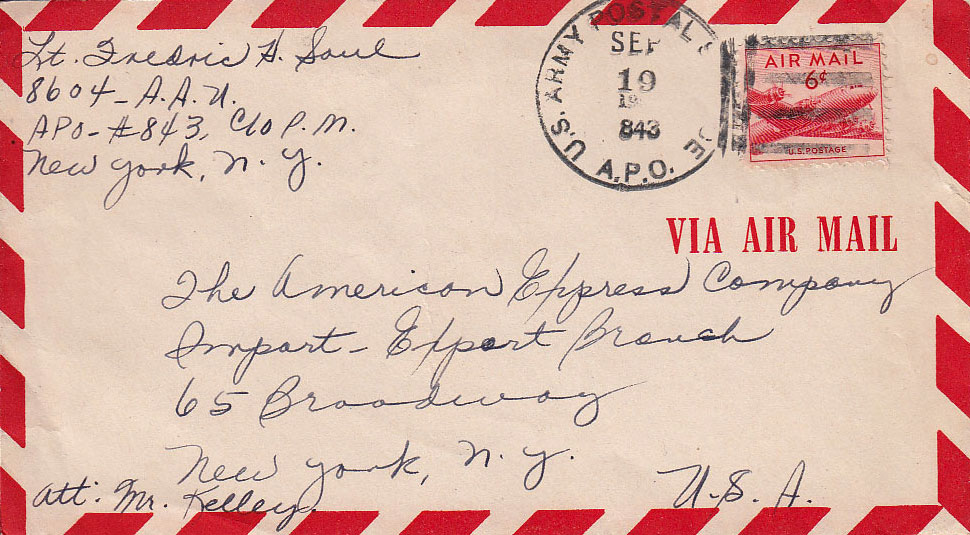 Lt. Fredric H. Saul
8604-A.A.U.
APO-#843, C/O P.M.
New York, N.Y.
U.S. ARMY POSTAL
SEP
19
19
843
A.P.O.
AIR MAIL
6¢
U.S. POSTAGE
VIA AIR MAIL
The American Express Company
Import-Export Branch
65 Broadway
New York, N.Y.
U.S.A.
Att: Mr. Kelley